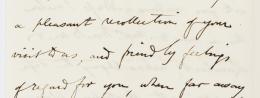 a pleasant recollection of your
visit to us, and friendly feelings
of regard for you, when far away